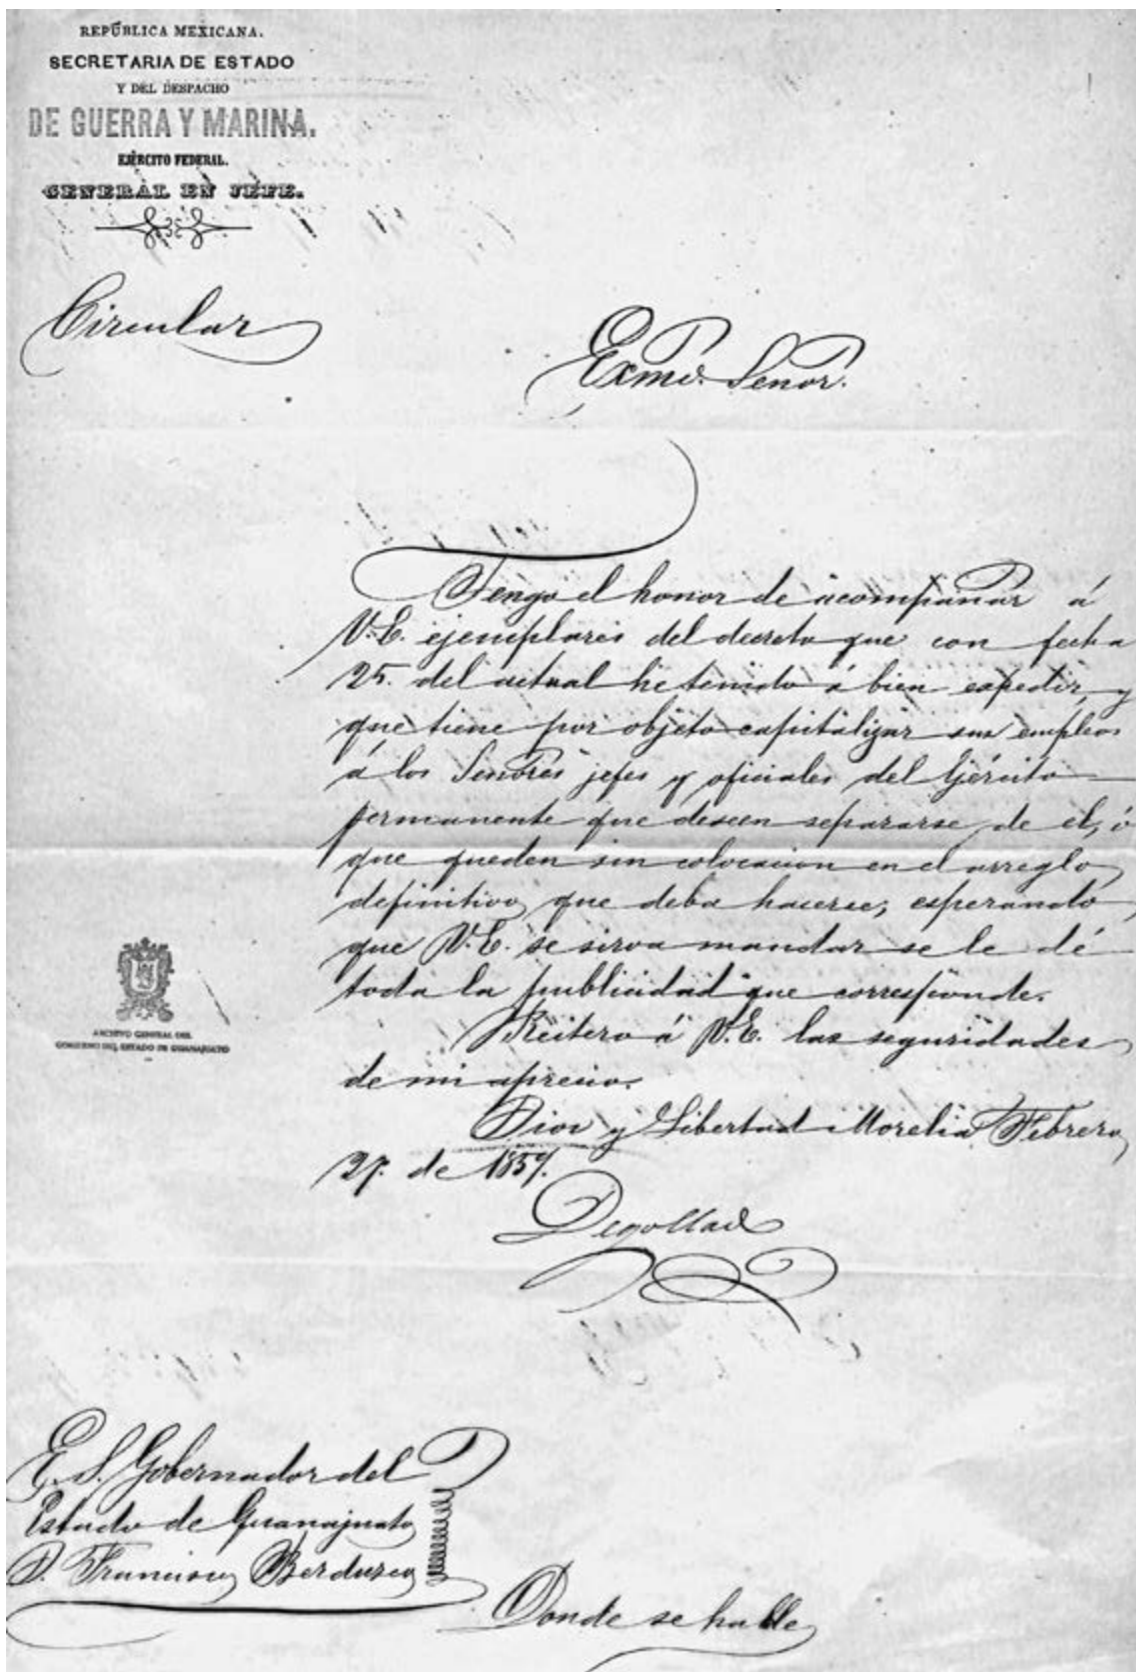 REPÚBLICA MEXICANA.
SECRETARIA DE ESTADO
Y DEL DESPACHO
DE GUERRA Y MARINA.
EJÉRCITO FEDERAL.
GENERAL EN JEFE.
Circular
Exmo. Señor.
Tengo el honor de acompañar á
V.E. ejemplares del decreto que con fecha
25. del actual he tenido á bien expedir, y
que tiene por objeto capitalizar sus empleos
á los Señores jefes y oficiales del Ejército
permanente que deseen separarse de el, ó
que queden sin colocacion en el arreglo
definitivo que deba hacerse; esperando
que V.E. se sirva mandar se le dé
toda la publicidad que corresponde.
Reitero á V.E. las seguridades
de mi aprecio.
Dios y Libertad Morelia Febrero
27. de 1859.
Degollado
ARCHIVO GENERAL DEL
GOBIERNO DEL ESTADO DE GUANAJUATO
E. S. Gobernador del
Estado de Guanajuato
D. Francisco Berduzco
Donde se halle